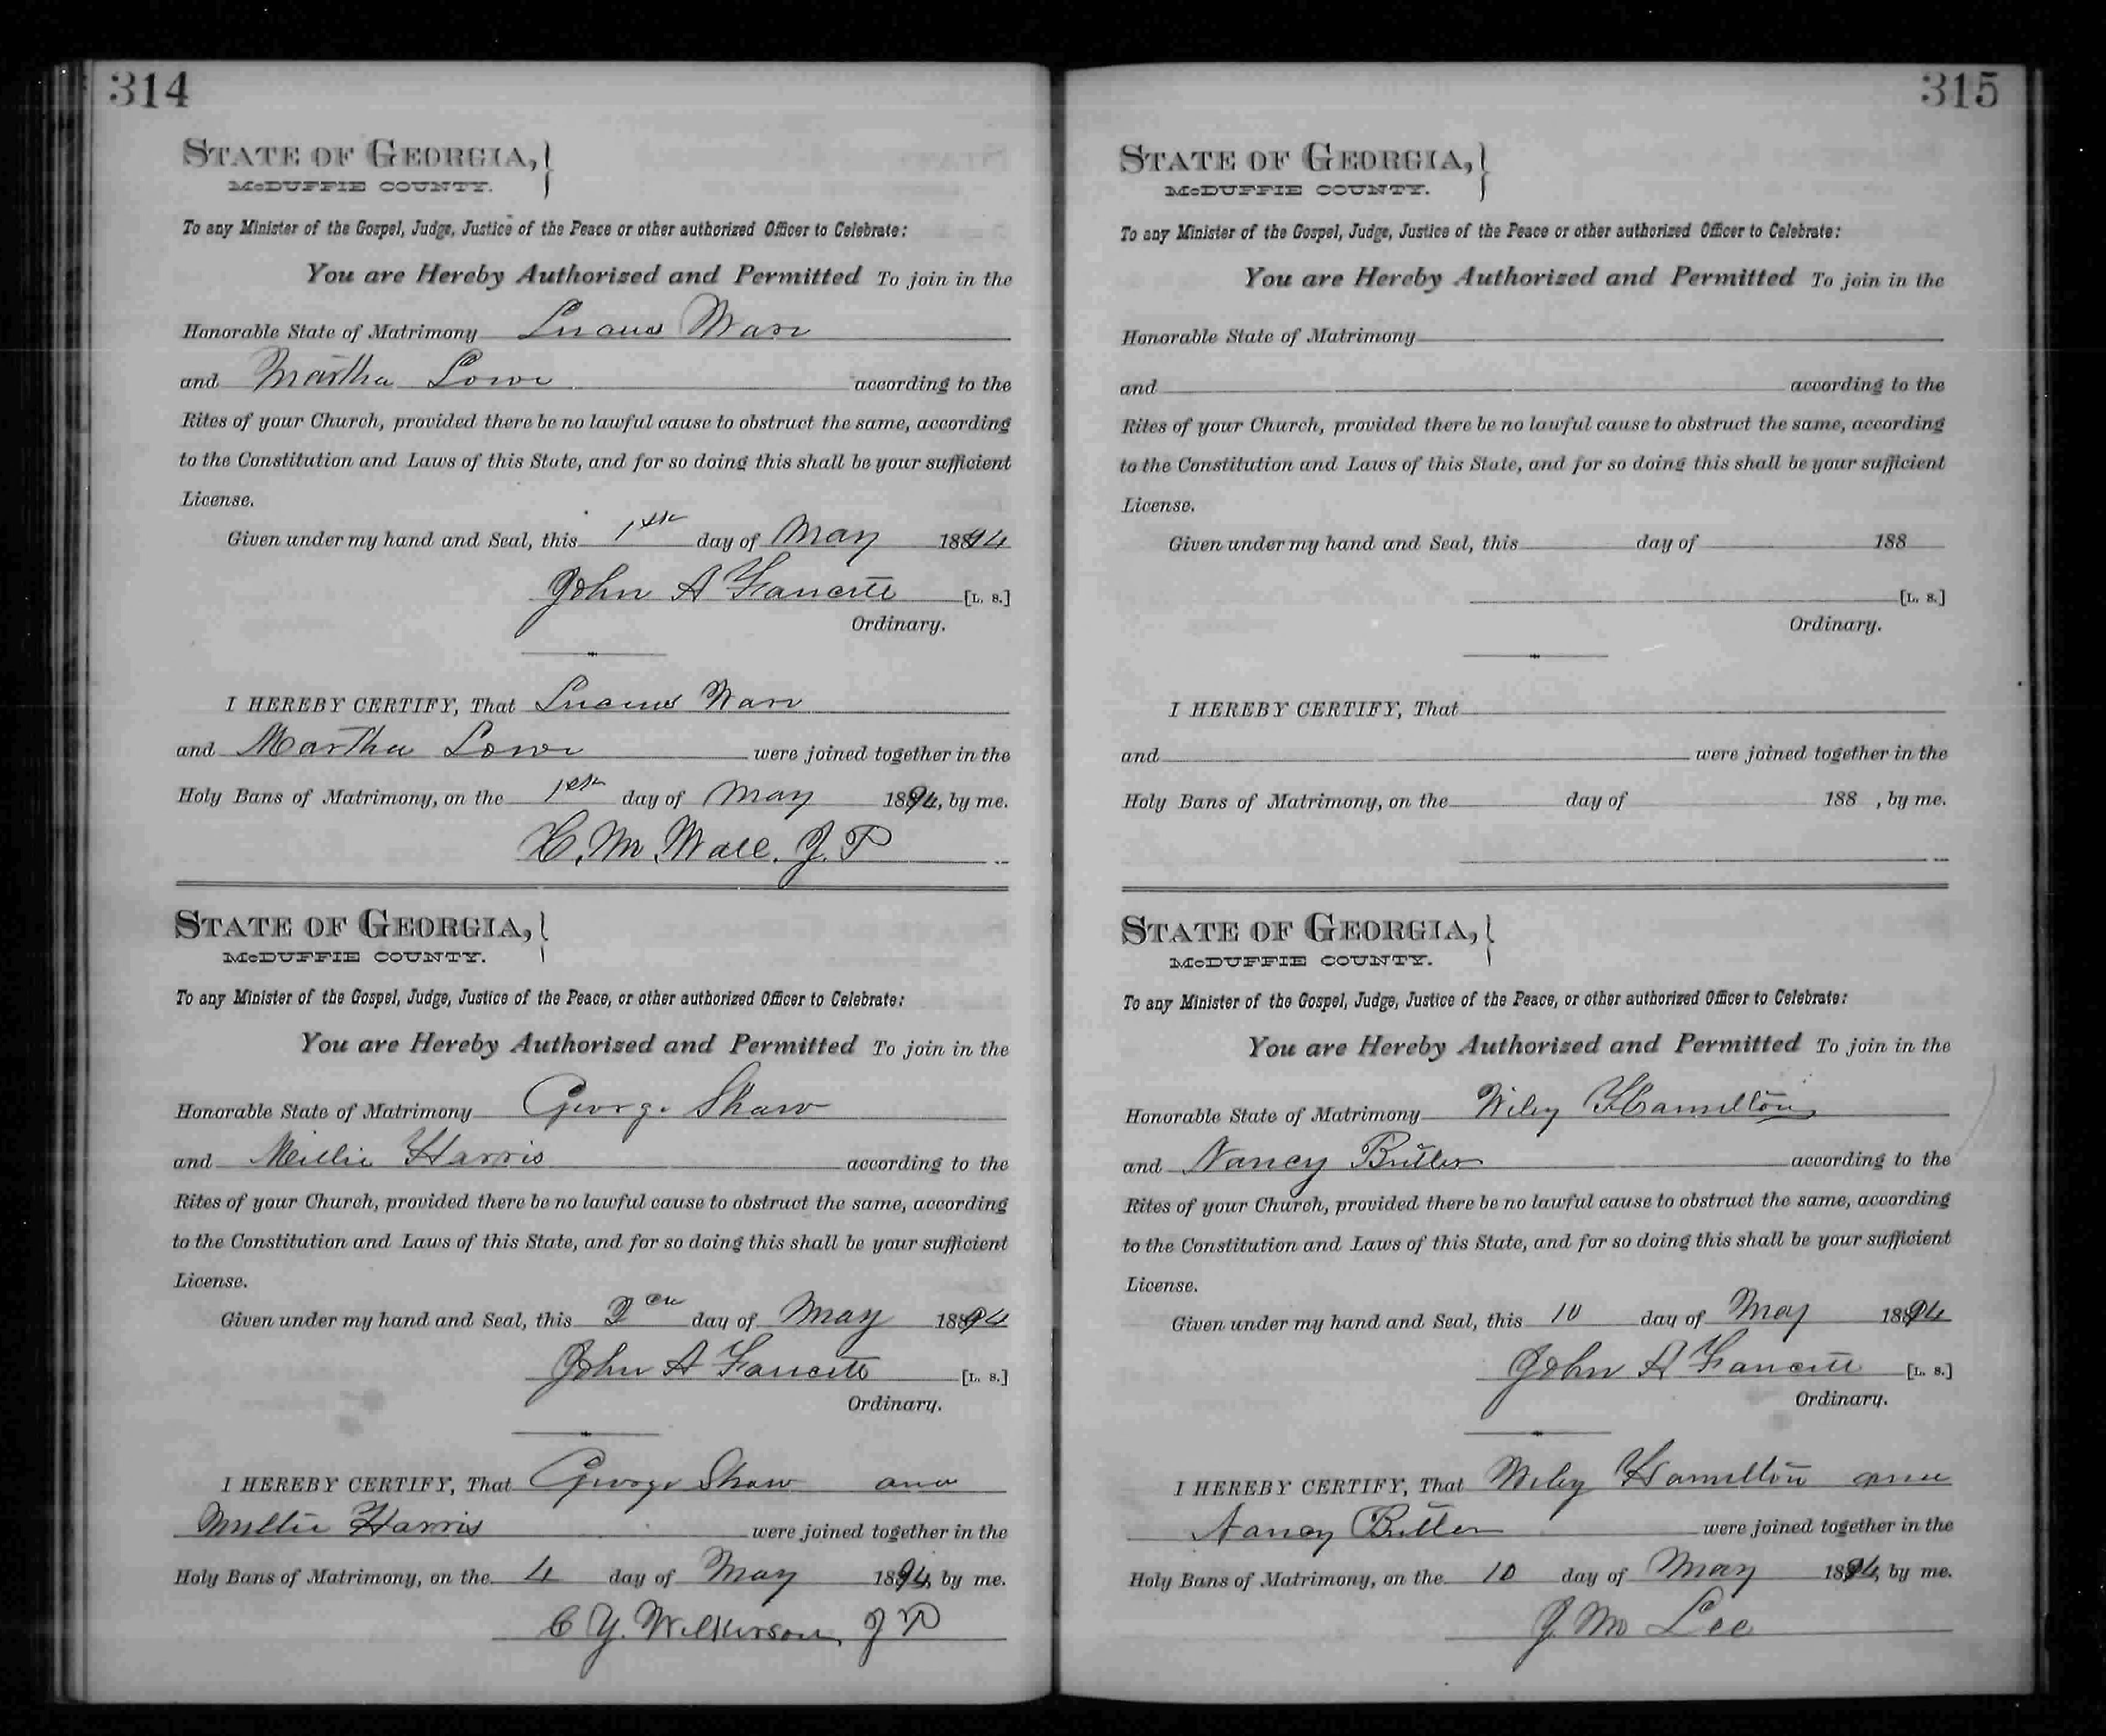 314
STATE OF GEORGIA,
McDUFFIE COUNTY.
To any Minister of the Gospel, Judge, Justice of the Peace or other authorized Officer to Celebrate:
You are Hereby Authorized and Permitted To join in the
Honorable State of Matrimony
and Martha Lowe according to the
Rites of your Church, provided there be no lawful cause to obstruct the same, according
to the Constitution and Laws of this State, and for so doing this shall be your sufficient
License.
Given under my hand and Seal, this 1st day of May 1894
John A [L. S.]
Ordinary.
I HEREBY CERTIFY, That
and Martha Lowe were joined together in the
Holy Bans of Matrimony, on the 1st day of May 1894, by me.
C. M. Wall. J. P
STATE OF GEORGIA,
McDUFFIE COUNTY.
To any Minister of the Gospel, Judge, Justice of the Peace, or other authorized Officer to Celebrate:
You are Hereby Authorized and Permitted To join in the
Honorable State of Matrimony George Shaw
and Millie Harris according to the
Rites of your Church, provided there be no lawful cause to obstruct the same, according
to the Constitution and Laws of this State, and for so doing this shall be your sufficient
License.
Given under my hand and Seal, this day of May 1894
John A [L. S.]
Ordinary.
I HEREBY CERTIFY, That George Shaw and
Millie Harris were joined together in the
Holy Bans of Matrimony, on the 4 day of May 1894, by me.
C Y. Wilkerson, J P
315
STATE OF GEORGIA,
McDUFFIE COUNTY.
To any Minister of the Gospel, Judge, Justice of the Peace or other authorized Officer to Celebrate:
You are Hereby Authorized and Permitted To join in the
Honorable State of Matrimony
and according to the
Rites of your Church, provided there be no lawful cause to obstruct the same, according
to the Constitution and Laws of this State, and for so doing this shall be your sufficient
License.
Given under my hand and Seal, this day of 188
[L. S.]
Ordinary.
I HEREBY CERTIFY, That
and were joined together in the
Holy Bans of Matrimony, on the day of 188 , by me.
STATE OF GEORGIA,
McDUFFIE COUNTY.
To any Minister of the Gospel, Judge, Justice of the Peace, or other authorized Officer to Celebrate:
You are Hereby Authorized and Permitted To join in the
Honorable State of Matrimony Wiley Hamilton
and Nancy Butler according to the
Rites of your Church, provided there be no lawful cause to obstruct the same, according
to the Constitution and Laws of this State, and for so doing this shall be your sufficient
License.
Given under my hand and Seal, this 10 day of May 1894
John A [L. S.]
Ordinary.
I HEREBY CERTIFY, That Wiley Hamilton and
Nancy Butler were joined together in the
Holy Bans of Matrimony, on the 10 day of May 1894, by me.
J. M Lee